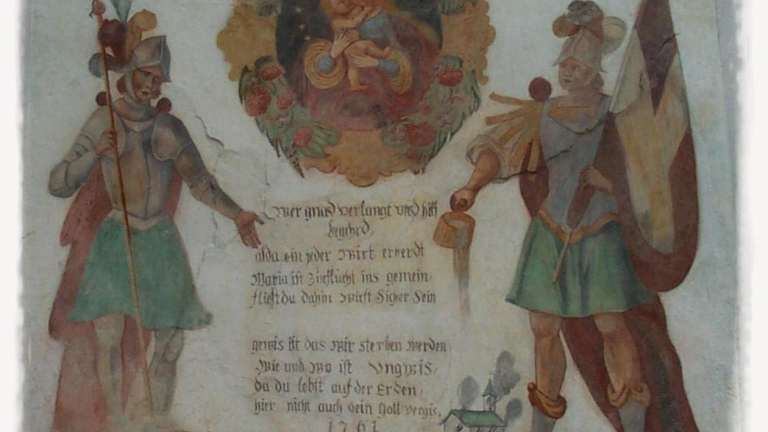 Wer gnad verlangt und hilf
begehrd
alda ein jeder Wirt erherdt
Maria ist Zueflucht ins gemein
fliehst du dahin Wiest Sicher Sein
gewis ist das Wir sterben werden
Wie und Wo ist Ungwis
da du lebst auf der Erden
hier nicht auch dein Gott vergis,
1761